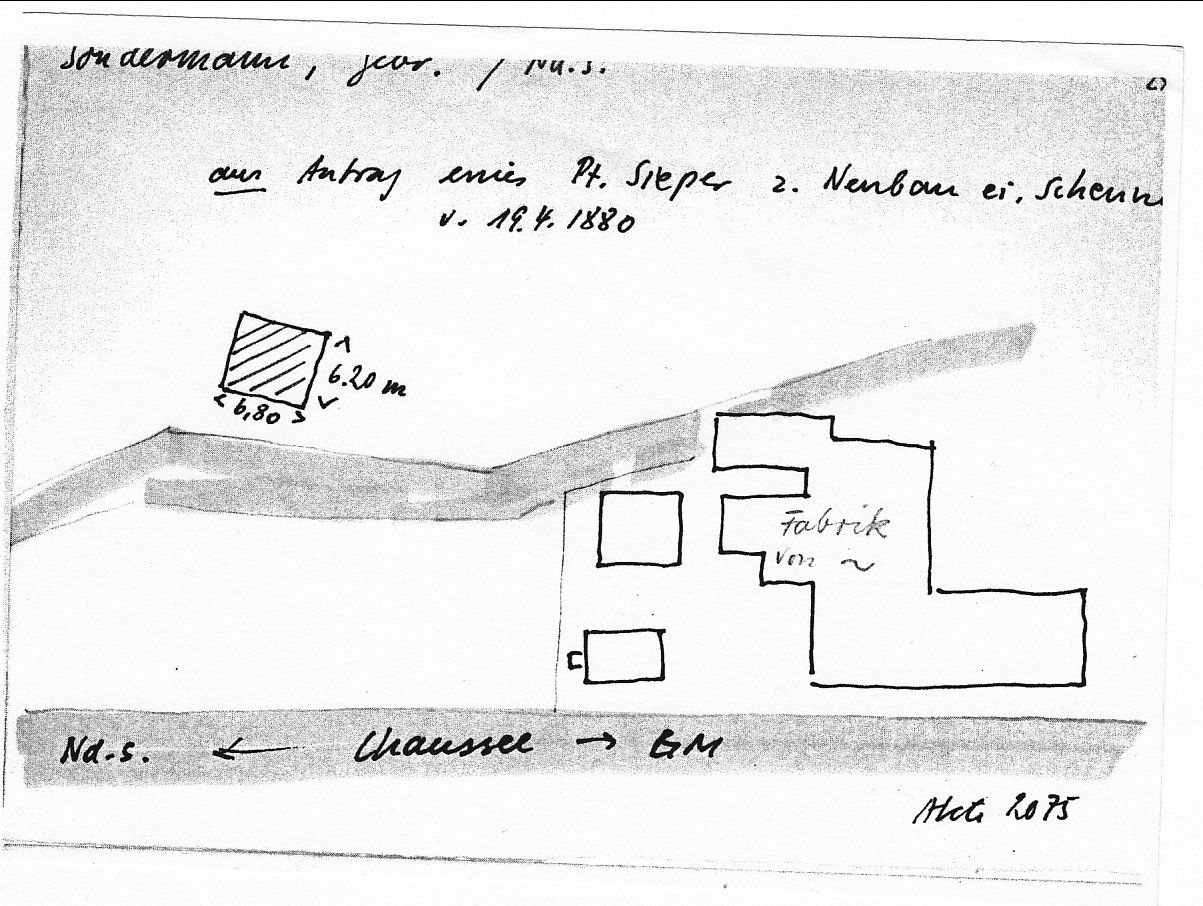 Sondermann, Gebr. / Nd.s.
aus Antrag eines Pt. Sieper z. Neubau ei. Scheun
v. 19.4.1880
6.20 m
6,80
Fabrik
von ~
Nd.s. ← Chaussee → GM
Akte 2075